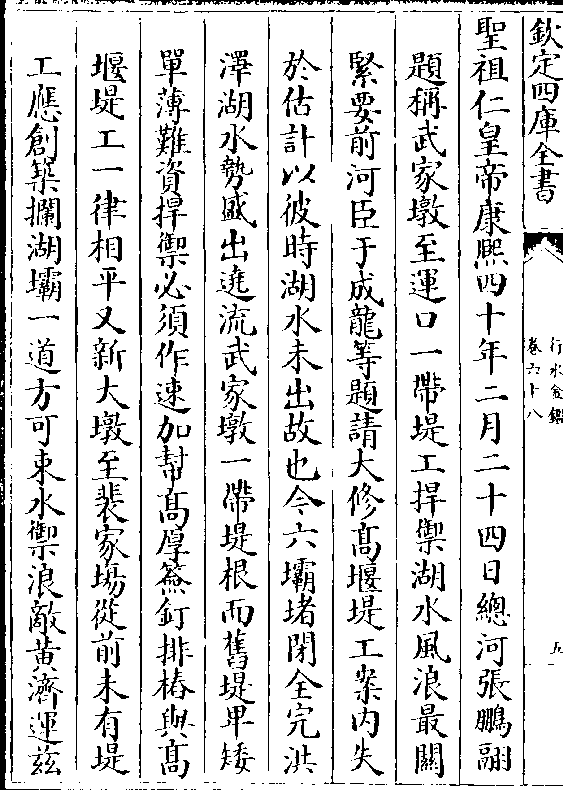 欽定四庫全書
行水金鑑
卷六十八
五
聖祖仁皇帝康熙四十年二月二十四日總河張鵬翮
題稱武家墩至運口一帶堤工捍禦湖水風浪最關
緊要前河臣于成龍等題請大修髙堰堤工案内失
於估計以彼時湖水未出故也今六壩堵閉全完洪
澤湖水勢盛出遶流武家墩一帶堤根而舊堤卑矮
單薄難資捍禦必須作速加幇髙厚簽釘排樁與髙
堰堤工一律相平又新大墩至裴家場從前未有堤
工應創築攔湖壩一道方可束水禦浪敵黄濟運兹